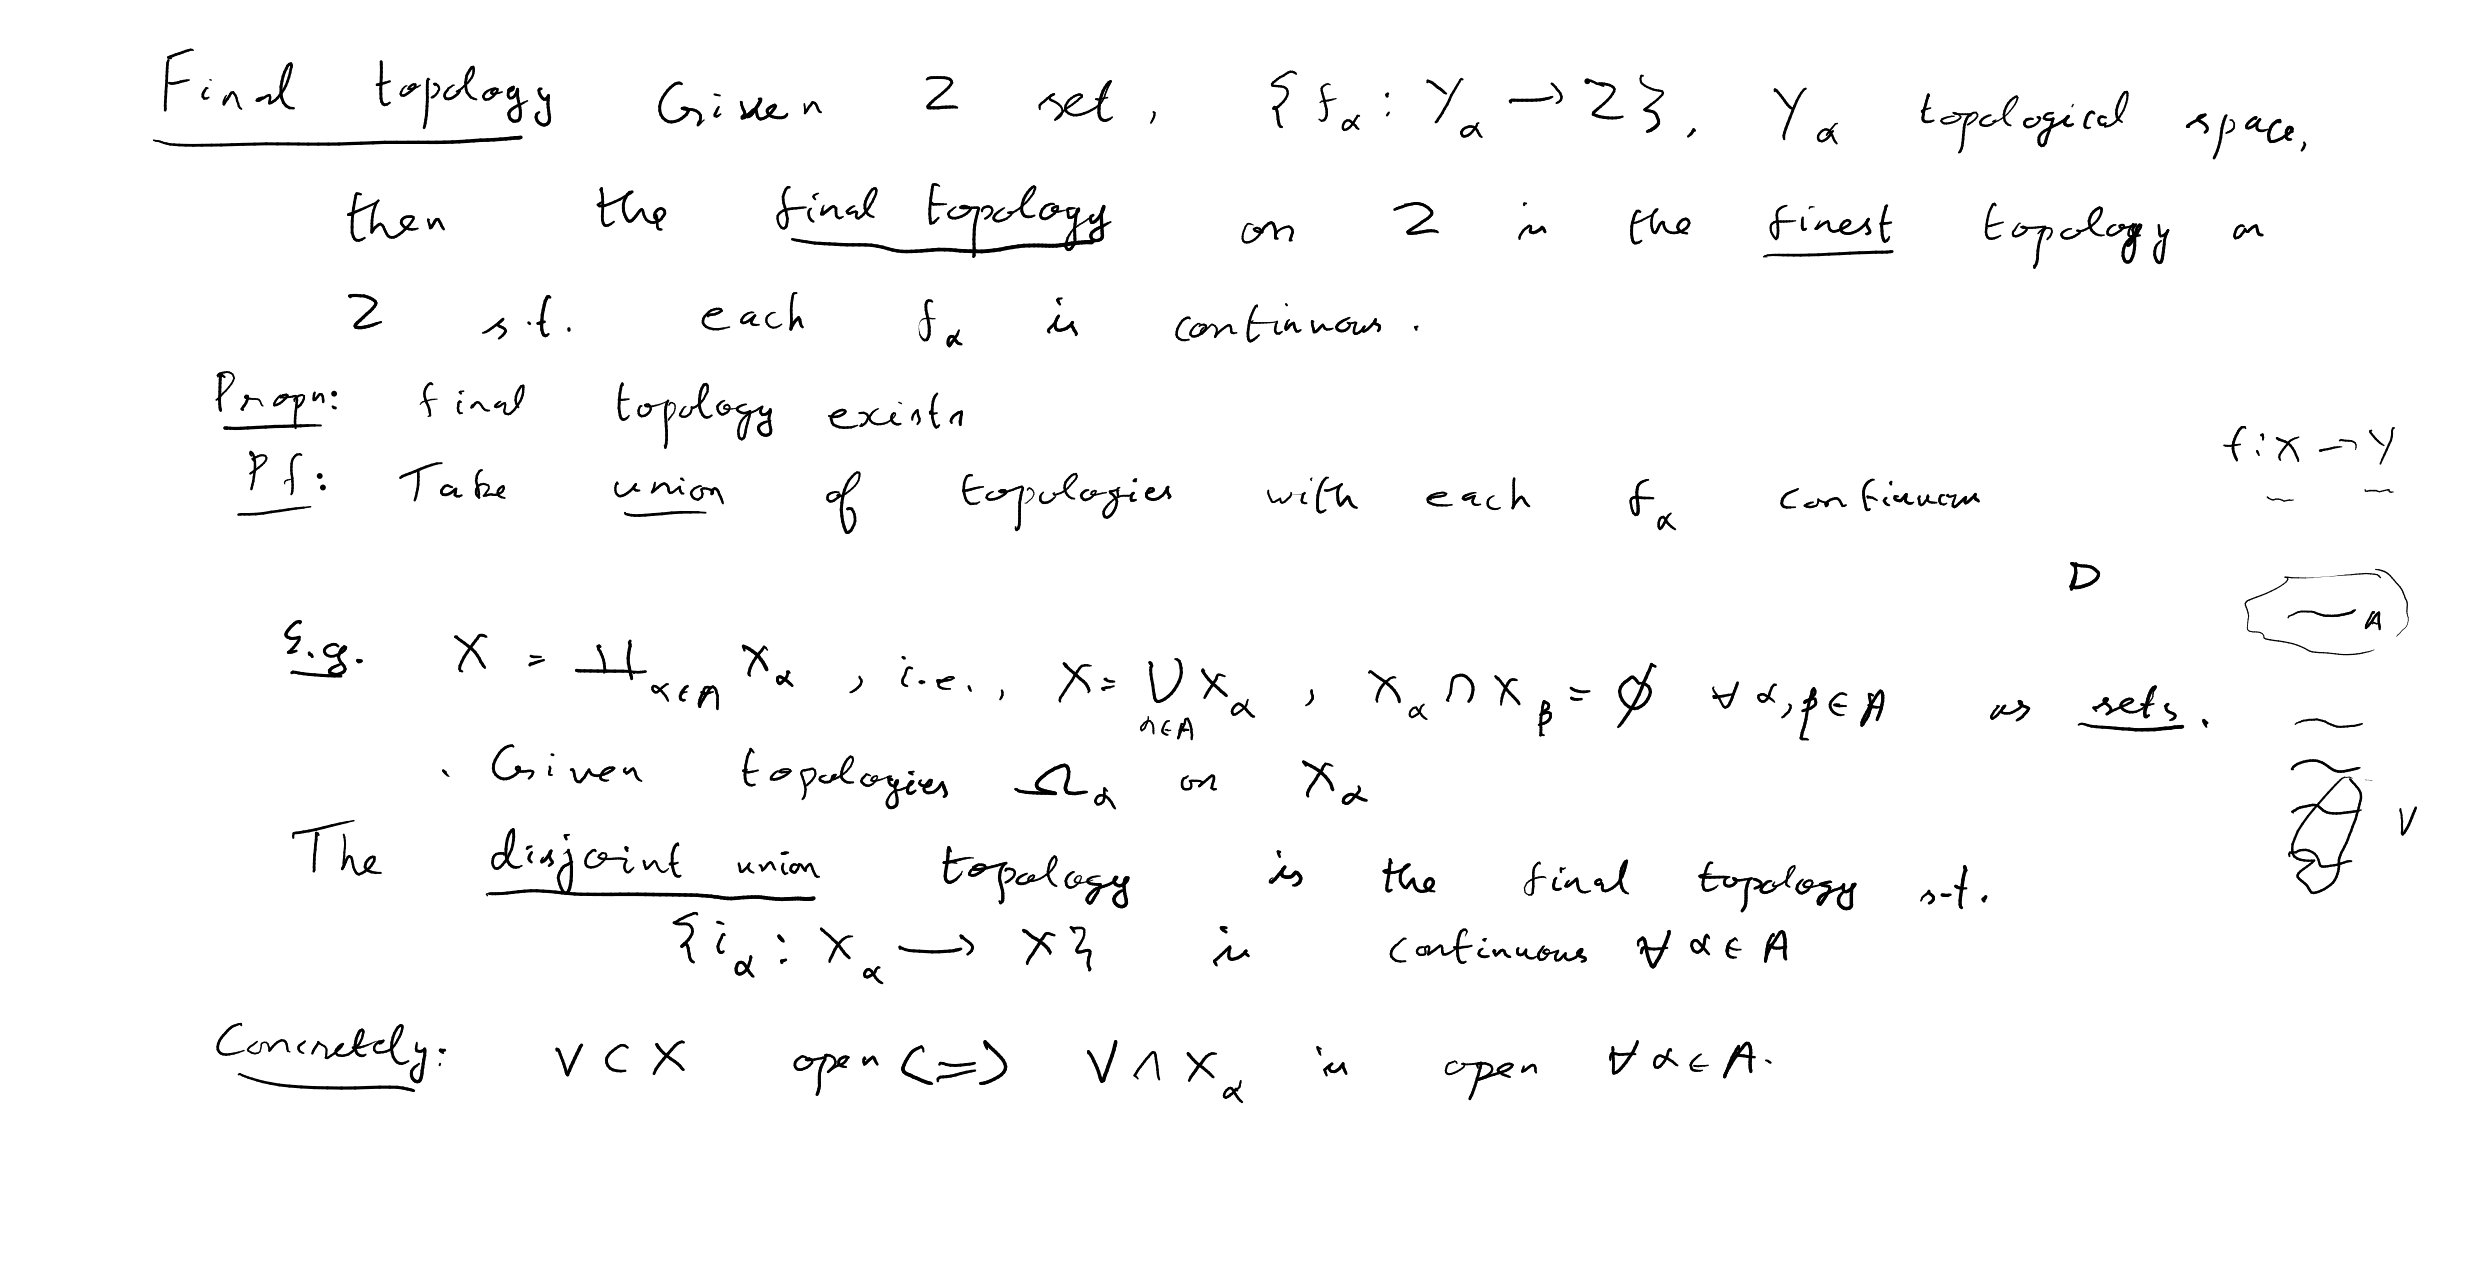 Final topology Given Z set, {f_α : Y_α → Z}, Y_α topological space,
then the final topology on Z is the finest topology on
Z s.t. each f_α is continuous.
Propn: final topology exists
f : X → Y
Pf: Take union of topologies with each f_α continuous
D
A
E.g. X = ∐_{α∈A} X_α , i.e., X = ∪_{α∈A} X_α , X_α ∩ X_β = ∅ ∀ α, β ∈ A as sets.
. Given topologies Ω_α on X_α
V
The disjoint union topology is the final topology s.t.
{i_α : X_α → X} is continuous ∀ α ∈ A
Concretely: V ⊂ X open <=> V ∩ X_α is open ∀ α ∈ A.